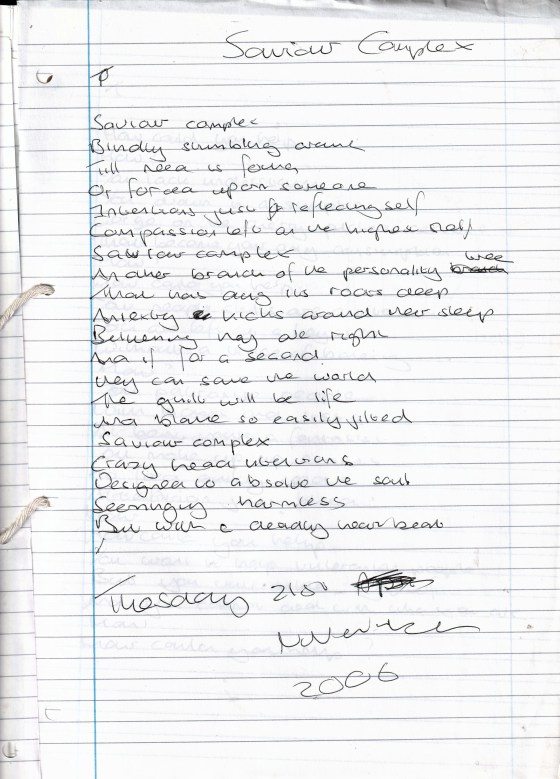 Saviour Complex
Saviour complex
Blindly stumbling around
Till need is found
Or forced upon someone
Intentions just reflecting self
Compassion left on the highest shelf
Saviour complex
Another branch of the personality tree
That has dug its roots deep
Anxiety kicks around her sleep
Believing they are right
And if for a second
they can save the world
The guilt will be life
And blame so easily jilted
Saviour complex
Crazy head vibrations
Designed to absolve the soul
Seemingly harmless
But with a deadly heart beat
Tuesday 21st
2006